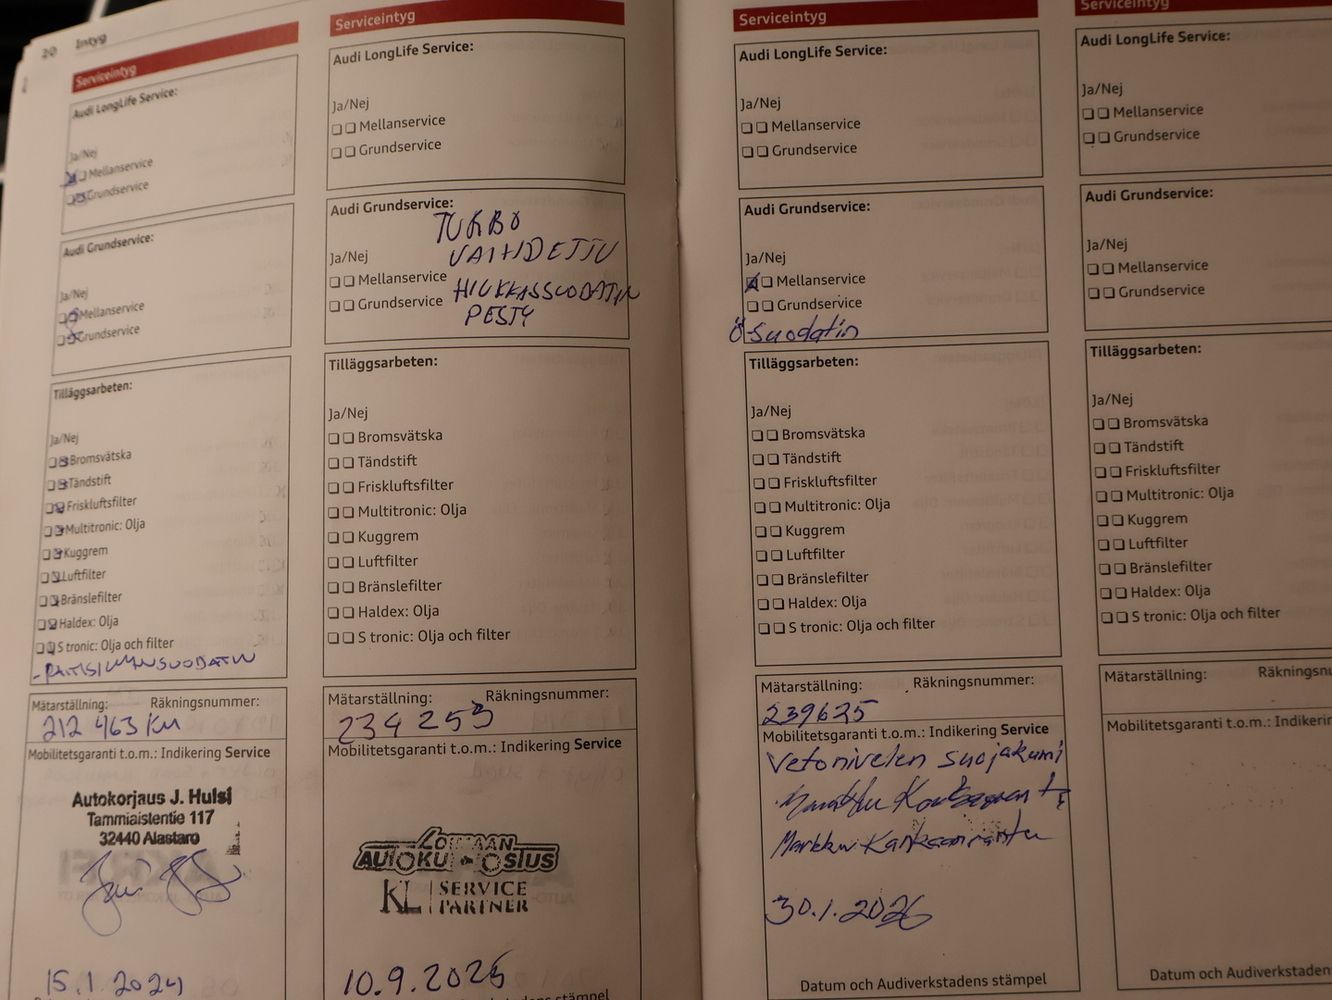 20 Intyg
Serviceintyg
Audi LongLife Service:
Ja/Nej
Mellanservice
Grundservice
Audi Grundservice:
Ja/Nej
Mellanservice
Grundservice
Tilläggsarbeten:
Ja/Nej
Bromsvätska
Tändstift
Friskluftsfilter
Multitronic: Olja
Kuggrem
Luftfilter
Bränslefilter
Haldex: Olja
S tronic: Olja och filter
- RAITISILMANSUODATIN
Mätarställning: Räkningsnummer:
212 463 KM
Mobilitetsgaranti t.o.m.: Indikering Service
Autokorjaus J. Hulsi
Tammiaistentie 117
32440 Alastaro
15.1.2024
Serviceintyg
Audi LongLife Service:
Ja/Nej
Mellanservice
Grundservice
Audi Grundservice:
TURBO
Ja/Nej VAIHDETTU
Mellanservice HIUKKASSUODATIN
Grundservice PESTY
Tilläggsarbeten:
Ja/Nej
Bromsvätska
Tändstift
Friskluftsfilter
Multitronic: Olja
Kuggrem
Luftfilter
Bränslefilter
Haldex: Olja
S tronic: Olja och filter
Mätarställning: Räkningsnummer:
234 253
Mobilitetsgaranti t.o.m.: Indikering Service
LOIMAAN
KL SERVICE
PARTNER
10.9.2025
stämpel
Serviceintyg
Audi LongLife Service:
Ja/Nej
Mellanservice
Grundservice
Audi Grundservice:
Ja/Nej
Mellanservice
Grundservice
Ö-suodatin
Tilläggsarbeten:
Ja/Nej
Bromsvätska
Tändstift
Friskluftsfilter
Multitronic: Olja
Kuggrem
Luftfilter
Bränslefilter
Haldex: Olja
S tronic: Olja och filter
Mätarställning: Räkningsnummer:
239625
Mobilitetsgaranti t.o.m.: Indikering Service
Vetonivelen suojakumi
Markku Kankaanranta
30.1.2026
Datum och Audiverkstadens stämpel
Serviceintyg
Audi LongLife Service:
Ja/Nej
Mellanservice
Grundservice
Audi Grundservice:
Ja/Nej
Mellanservice
Grundservice
Tilläggsarbeten:
Ja/Nej
Bromsvätska
Tändstift
Friskluftsfilter
Multitronic: Olja
Kuggrem
Luftfilter
Bränslefilter
Haldex: Olja
S tronic: Olja och filter
Mätarställning:
Mobilitetsgaranti t.o.m.:
Datum och